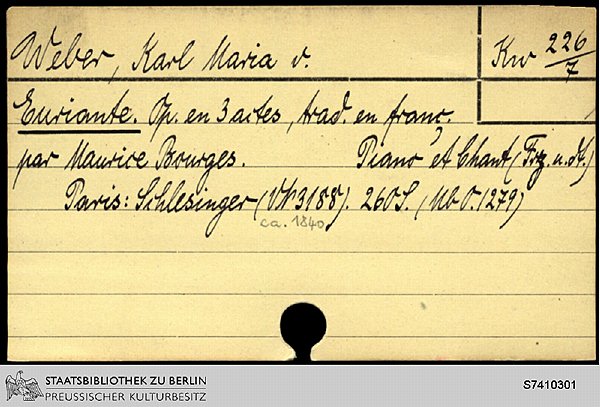 Weber, Karl Maria v.
Kw 226/7
Euriante. Op. en 3 actes, trad. en franç.
par Maurice Bourges. Piano et Chant (Frz. u. dt.)
Paris: Schlesinger (VN 3188). 260 S. (Mb O. 1279)
ca. 1840
STAATSBIBLIOTHEK ZU BERLIN
PREUSSISCHER KULTURBESITZ
S7410301